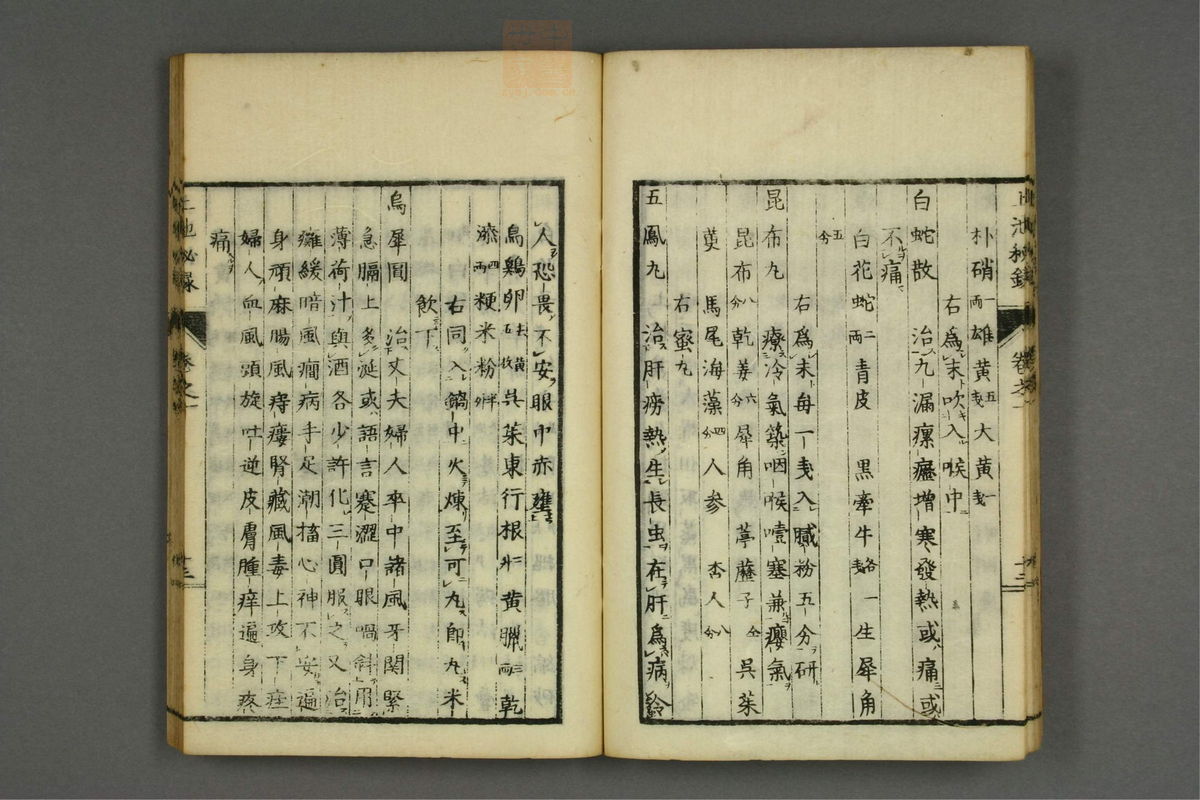 朴硝一両雄黄五戔大黄一戔
右爲末吹入喉中
白蛇散 治九漏瘰癧増寒發熱或痛或
不痛
白花蛇二両青皮 黒牽牛各一戔生犀角
五分
右爲末毎一戔入膩粉五分研
昆布丸 療冷氣築咽喉噎塞兼癭氣
昆布八分乾姜六分犀角 葶藶子仝呉茱
萸 馬尾海藻四分人参 杏人八分
右蜜丸
五鳳丸 治肝癆熱生長虫在肝爲病
人恐畏不安眼巾赤壅
烏鷄卵去黄五枚呉茱東行根 黄臘三両乾
漆四両粳米粉半斤
右同入鍋中火煉至可丸即丸米
飲下
烏犀圓 治丈夫婦人卒中諸風牙関緊
急膈上多涎或語言蹇澀口眼喎斜用
薄荷汁與酒各少許化三圓服之又治
癱緩暗風癇病手足潮搐心神不安遍
身頑麻腸風痔瘻腎臓風毒上攻下疰
婦人血風頭旋吐逆皮膚腫痒遍身疼
痛
上池秘録 巻之一 十三